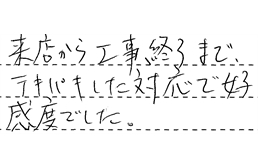 来店から工事終るまで、
テキパキした対応で好
感度でした。